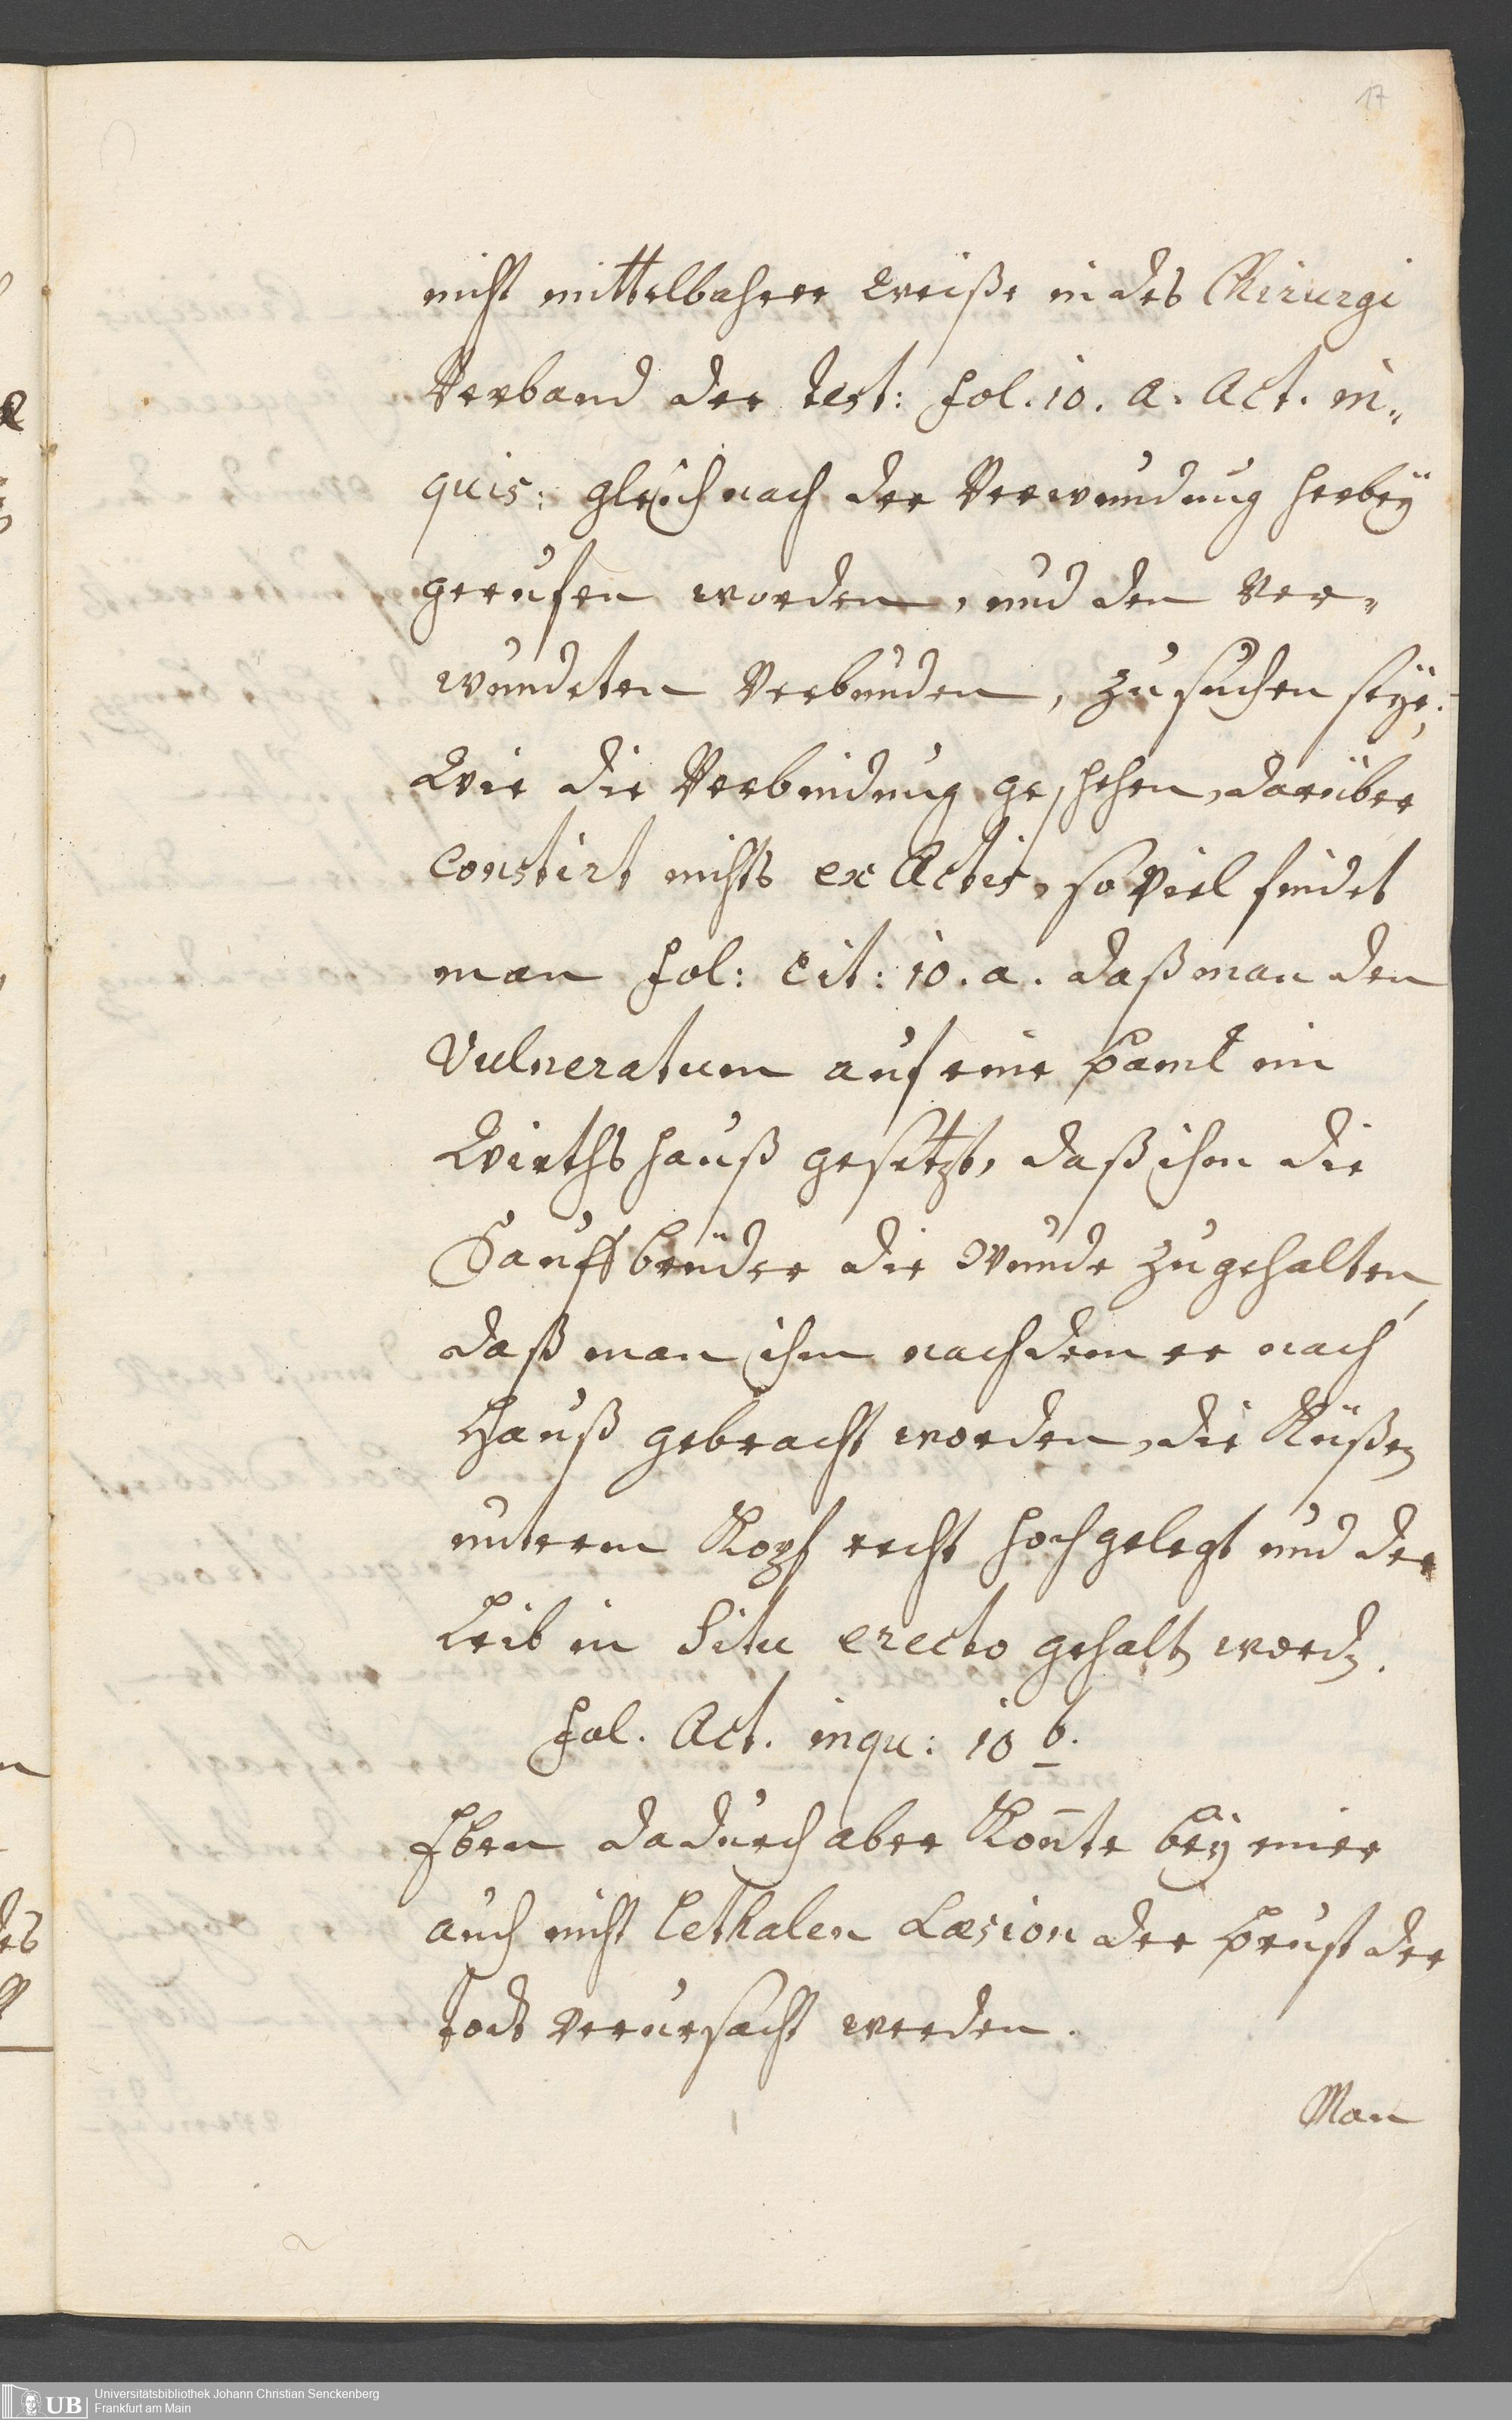 17
nicht mittelbahrer Weiße in des Chirurgi
Verband der test: fol. 10. a. Act. in„
quis: gleich nach der Verwundung herbeÿ
gerufen worden, und den Ver„
wundeten Verbunden, zu suchen seÿe;
Wie die Verbindung geschehen, darüber
Constirt nichts ex Actis, so viel findet
man fol: cit: 10. a. daß man den
Vulneratum auf eine banck im
Wirthshauß gesetzt, daß ihm die
Sauffbrüder die Wunde zugehalten,
daß man ihm nachdem er nach
Hauß gebracht worden, die Küßen
unterm Kopf recht hoch gelegt und der
Leib in Situ erecto gehalten worden.
fol. Act. inqu: 10 b.
Eben dadurch aber Konnte beÿ einer
auch nicht lethalen Læsion der brust der
todt verursacht werden.
Man
UB Universitätsbibliothek Johann Christian Senckenberg
Frankfurt am Main